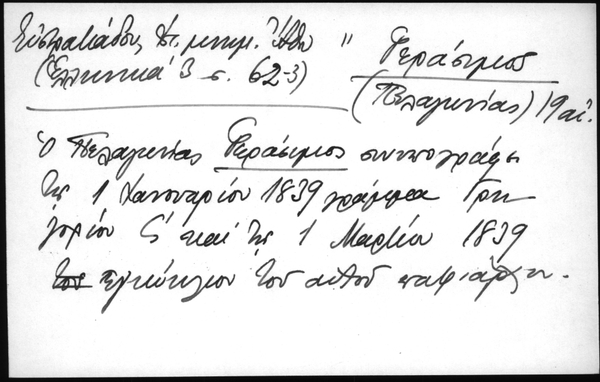 Εὐστρατιάδου, Ἱστ. μνημ. Ἄθω " Γεράσιμος
(Ἑλληνικά 3 σ. 62-3) (Πελαγωνίας) 19 αἰ.
Ὁ Πελαγωνίας Γεράσιμος συνυπογράφει
τῇ 1 Ἰανουαρίου 1839 γράμμα Γρη
γορίου ς΄ καί τῇ 1 Μαρτίου 1839
ἐγκύκλιον τοῦ αὐτοῦ πατριάρχου.